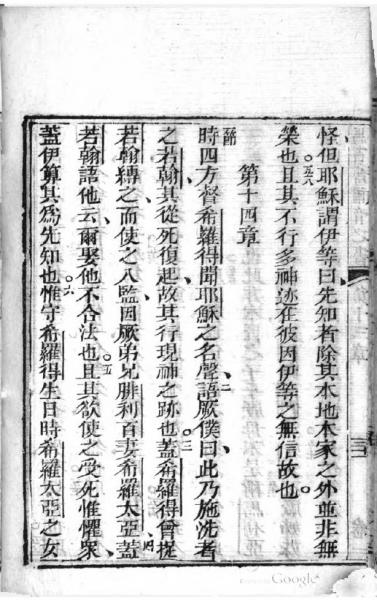 怪但耶穌謂伊等曰先知者除其本地本家之外並非無
榮也五八且其不行多神迹在彼因伊等之無信故也
第十四章
一節時四方督希羅得聞耶穌之名聲二語厥僕曰此乃施洗者
之若翰其從死復起故其行現神之跡也三蓋希羅得曾捉
若翰縛之而使之入監因厥弟兄腓利百妻希羅太亞四蓋
若翰語他云爾娶他不合法也五且其欲使之受死惟懼衆
蓋伊算其為先知也六惟守希羅得生日時希羅太亞之女
Google